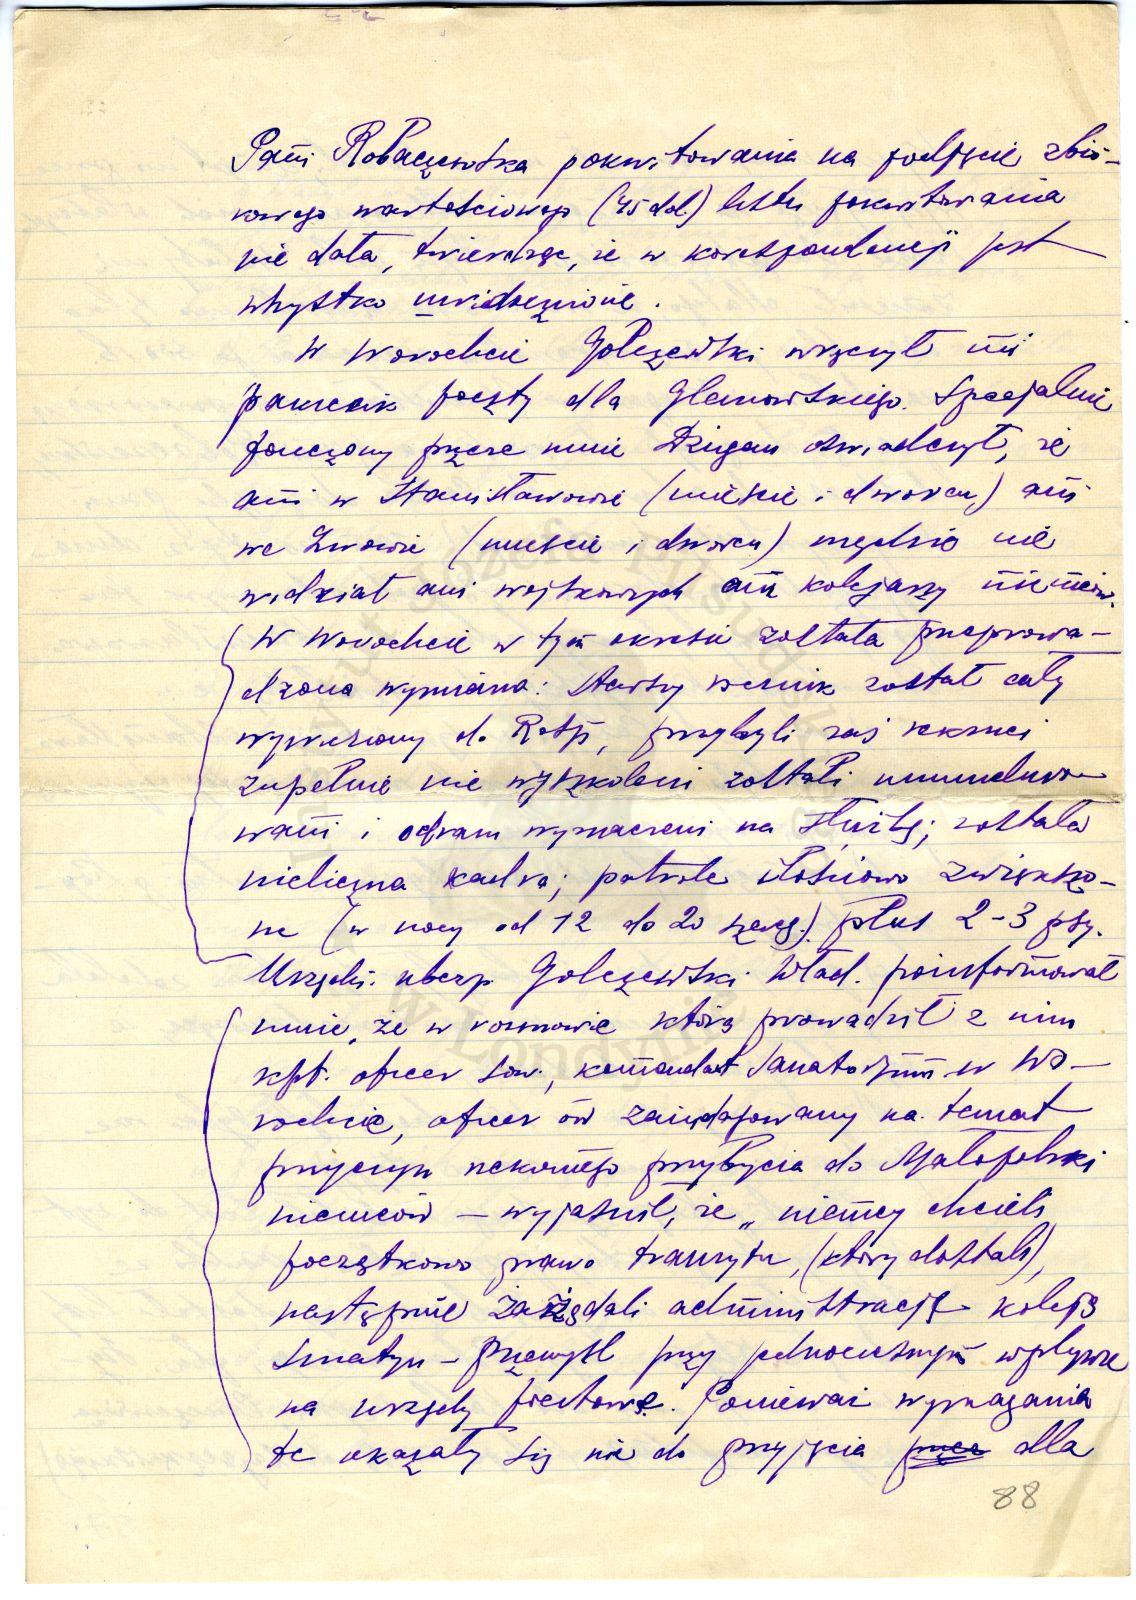 Pani Robaczewska pokwitowania na podjęcie zbio-
rowego wartościowego (45 dol.) listu pokwitowania
nie dała, twierdząc, że w korespondencji jest
wszystko uwidocznione.
W Worochcie Golczewski wręczył mi
pakiecik poczty dla Glemowskiego. Specjalnie
pouczony przeze mnie Dzigan oświadczył, że
ani w Stanisławowie (mieście i dworcu) ani
we Lwowie (mieście i dworcu) nigdzie nie
widział ani wojskowych ani kolejarzy niemców.
W Worochcie w tym okresie została przeprowa-
dzona wymiana: starszy rocznik został cały
wywieziony do Rosji, przybyli zaś rekruci
zupełnie nie wyszkoleni zostali umunduro-
wani i odrazu wyznaczeni na służbę; została
nieliczna kadra; patrole ilościowo zwiększo-
ne (w nocy od 12 do 20 szereg.) plus 2-3 psy.
Urzędn. ubezp. Golczewski Wład. poinformował
mnie, że w rozmowie którą prowadził z nim
kpt. oficer sow., komendant sanatorjum w Wo-
rochcie, oficer ów zaindagowany na temat
przyczyn rzekomego przybycia do Małopolski
niemców — wyjaśnił, że „niemcy chcieli
początkowo prawo tranzytu, (który dostali),
następnie zażądali administrację koleją
Sniatyn - Przemyśl przy jednoczesnym wpływie
na urzędy pocztowe. Ponieważ wymagania
te okazały się nie do przyjęcia dla
88
w Londynie